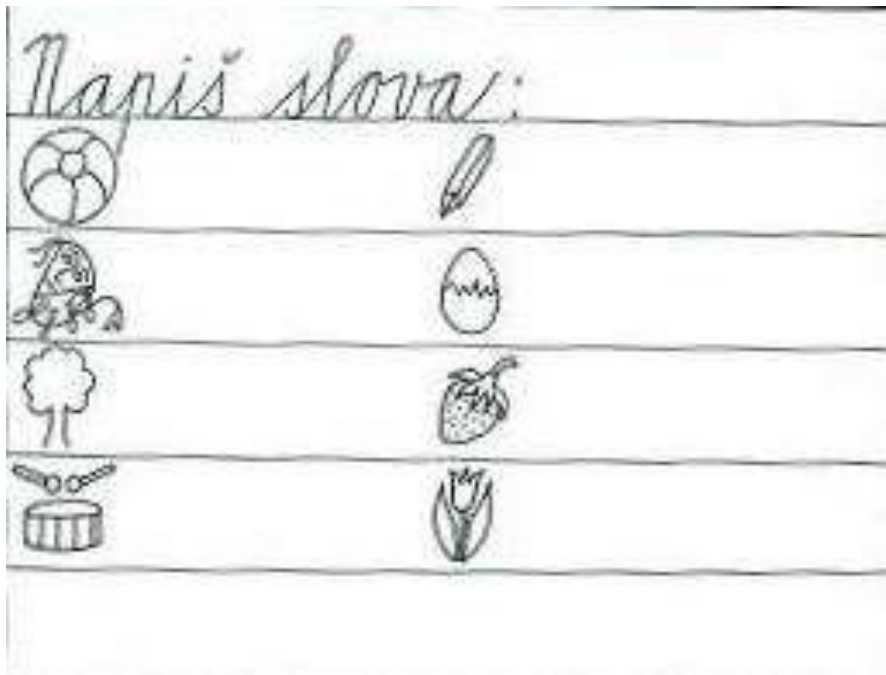 Napiš slova: